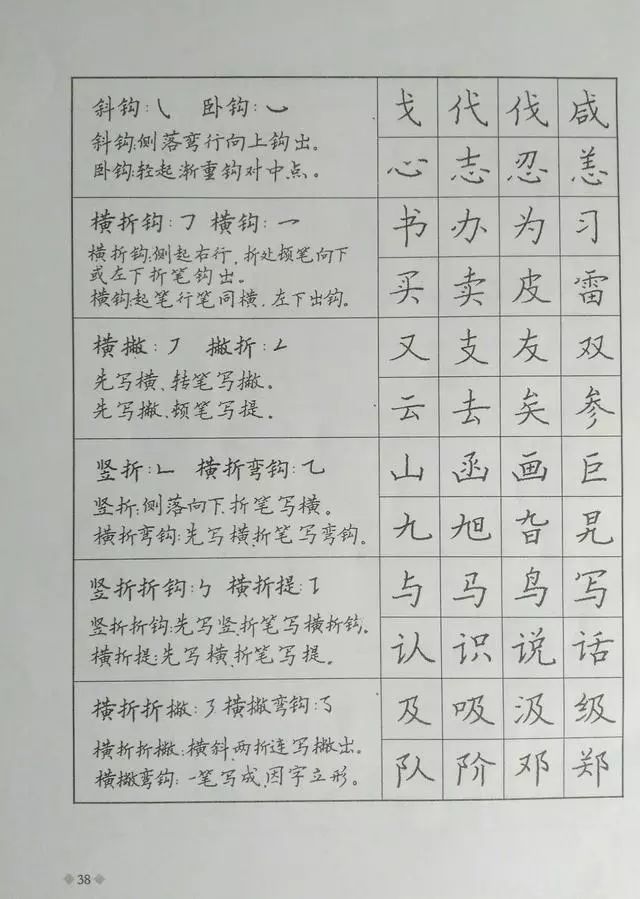 斜钩:㇂ 卧钩:㇃
斜钩:侧落弯行向上钩出。
卧钩:轻起渐重钩对中点。
戈 代 伐 咸
心 志 忍 恙
横折钩:㇆ 横钩:㇖
横折钩:侧起右行,折处顿笔向下
或左下折笔钩出。
横钩:起笔行笔同横、左下出钩。
书 办 为 习
买 卖 皮 雷
横撇:㇇ 撇折:㇜
先写横、转笔写撇。
先写撇、顿笔写提。
又 支 友 双
云 去 矣 参
竖折:㇗ 横折弯钩:㇈
竖折:侧落向下、折笔写横。
横折弯钩:先写横、折笔写弯钩。
山 函 画 巨
九 旭 旮 旯
竖折折钩:㇉ 横折提:㇊
竖折折钩:先写竖、折笔写横折钩。
横折提:先写横、折笔写提。
与 马 鸟 写
认 识 说 话
横折折撇:㇋ 横撇弯钩:㇌
横折折撇:横斜、两折连写撇出。
横撇弯钩:一笔写成、因字立形。
及 吸 汲 级
队 阶 邓 郑
38